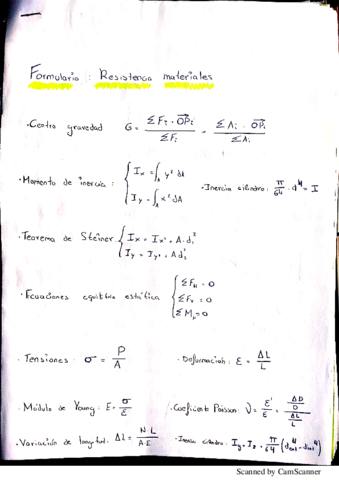 Formulario : Resistencia materiales
·Centro gravedad G = ΣFi · OPi / ΣFi = ΣAi · OPi / ΣAi
·Momento de inercia : { Ix = ∫A y² dA
Iy = ∫A x² dA
·Inercia cilindro: π/64 · d⁴ = I
·Teorema de Steiner { Ix = Ix' + A·d²
Iy = Iy' + A d²
·Ecuaciones equilibrio estática { ΣFH = 0
ΣFV = 0
ΣM = 0
·Tensiones σ = P/A
·Deformación: ε = ΔL/L
·Módulo de Young: E = σ/ε
·Coeficiente Poisson: ν = ε'/ε = (ΔD/D)/(ΔL/L)
·Variación de longitud: ΔL = N L / A E
·Inercia cilindro: Iy = Iz = π/64 (d⁴ext - dint⁴)
Scanned by CamScanner